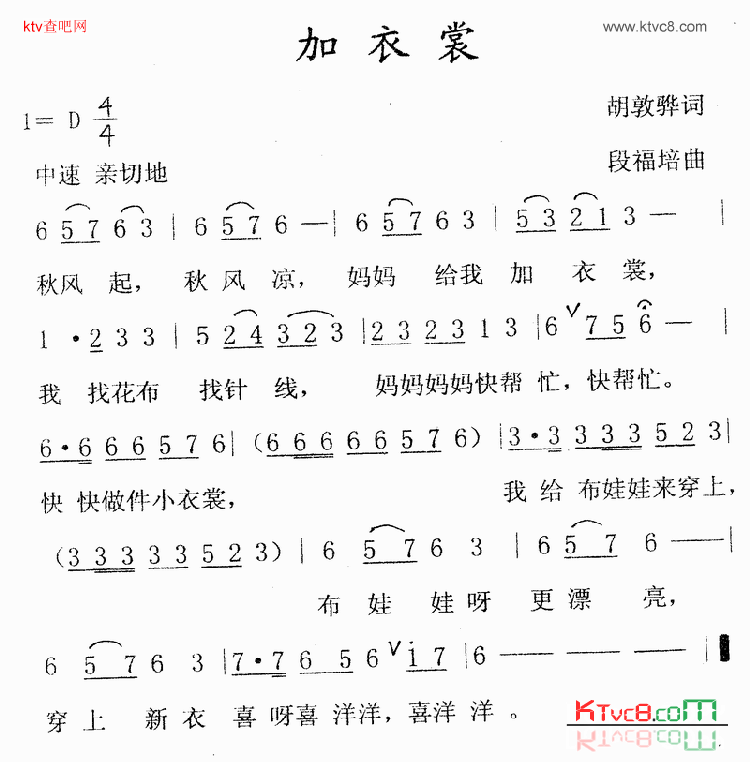 ktv查吧网
www.ktvc8.com
加衣裳
1= D 4/4
胡敦骅词
中速 亲切地
段福培曲
6 5 7 6 3 | 6 5 7 6 — | 6 5 7 6 3 | 5 3 2 1 3 — |
秋风 起, 秋 风 凉, 妈妈 给我 加 衣 裳,
1 · 2 3 3 | 5 2 4 3 2 3 | 2 3 2 3 1 3 | 6 ∨ 7 5 6 — |
我 找花布 找针 线, 妈妈妈妈快帮 忙, 快帮忙。
6 · 6 6 6 5 7 6 | ( 6 6 6 6 6 5 7 6 ) | 3 · 3 3 3 3 5 2 3 |
快 快做件小衣裳, 我 给 布娃娃来穿上,
( 3 3 3 3 3 5 2 3 ) | 6 5 7 6 3 | 6 5 7 6 — |
布 娃 娃 呀 更 漂 亮,
6 5 7 6 3 | 7 · 7 6 5 6 ∨ i 7 | 6 — — — |
穿 上 新 衣 喜 呀喜 洋洋, 喜洋 洋 。
KTvc8.com